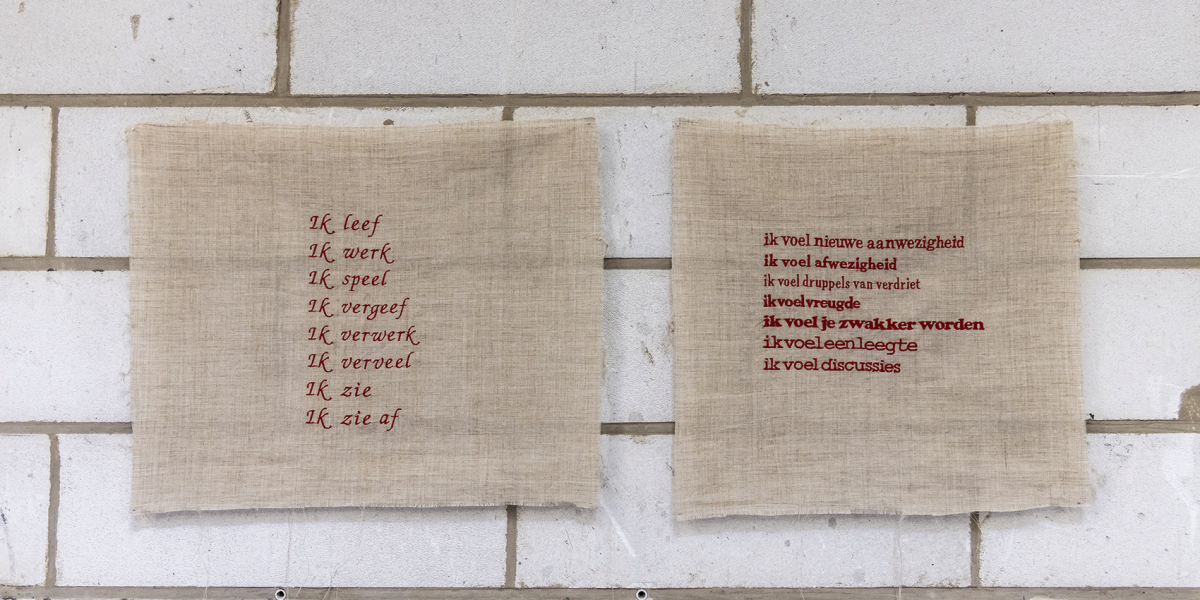 Ik leef
Ik werk
Ik speel
Ik vergeef
Ik verwerk
Ik verveel
Ik zie
Ik zie af
ik voel nieuwe aanwezigheid
ik voel afwezigheid
ik voel druppels van verdriet
ik voel vreugde
ik voel je zwakker worden
ik voel een leegte
ik voel discussies